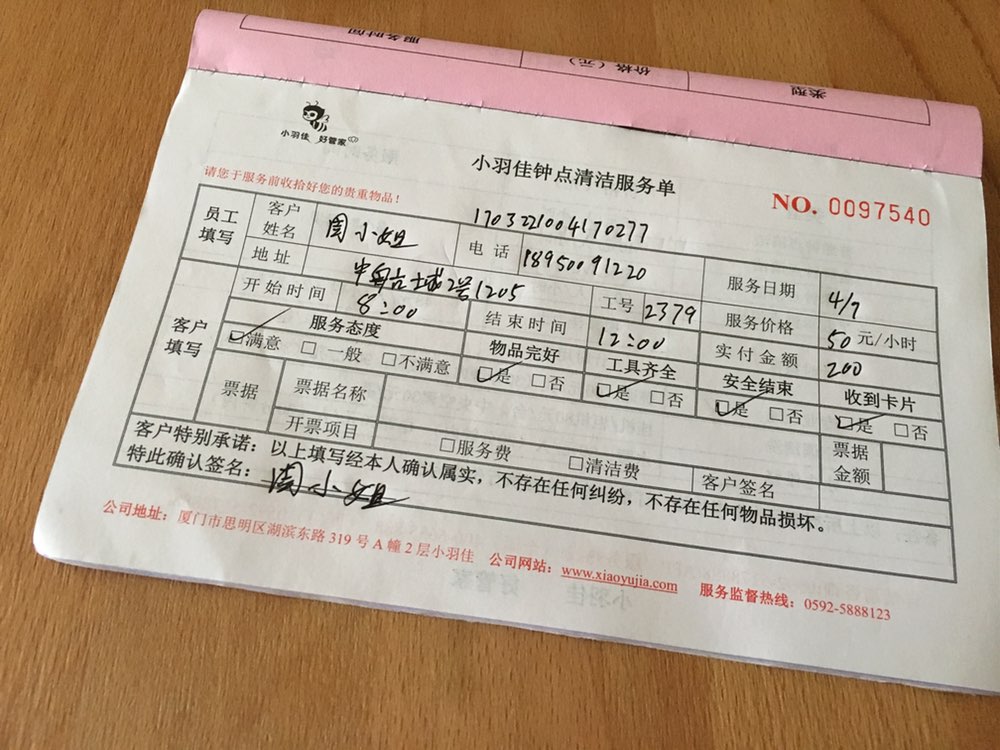 服务时间 价格（元） 类型
小羽佳 好管家
小羽佳钟点清洁服务单
请您于服务前收拾好您的贵重物品！
NO. 0097540
170322100417027​7
员工填写 客户姓名 周小姐 电话 18950091220 服务日期 4/7
地址 2号1205 工号 2379 服务价格 50 元/小时
客户填写 开始时间 8:00 结束时间 12:00 实付金额 200
服务态度 物品完好 工具齐全 安全结束 收到卡片
满意 一般 不满意 是 否 是 否 是 否 是 否
票据 票据名称 票据金额
开票项目 服务费 清洁费 客户签名
客户特别承诺：以上填写经本人确认属实，不存在任何纠纷，不存在任何物品损坏。
特此确认签名：周小姐
公司地址：厦门市思明区湖滨东路 319 号 A 幢 2 层小羽佳 公司网站：www.xiaoyujia.com 服务监督热线：0592-5888123